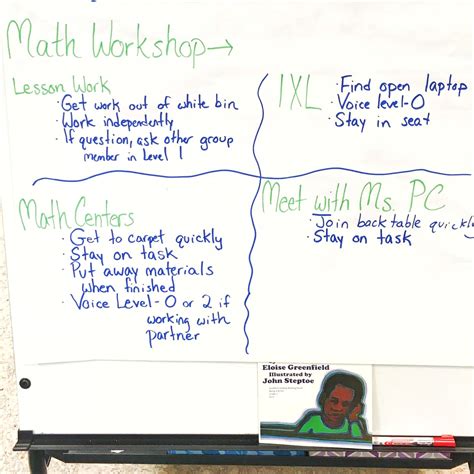 Math Workshop→
Lesson Work
· Get work out of white bin
· Work independently
· If question, ask other group
member in Level 1
IXL
· Find open laptop
· Voice level-0
· Stay in seat
Math Centers
· Get to carpet quickly
· Stay on task
· Put away materials
when finished
· Voice Level-0 or 2 if
working with
partner
Meet with Ms. PC
· Join back table quickly
· Stay on task
by
Eloise Greenfield
Illustrated by
John Steptoe